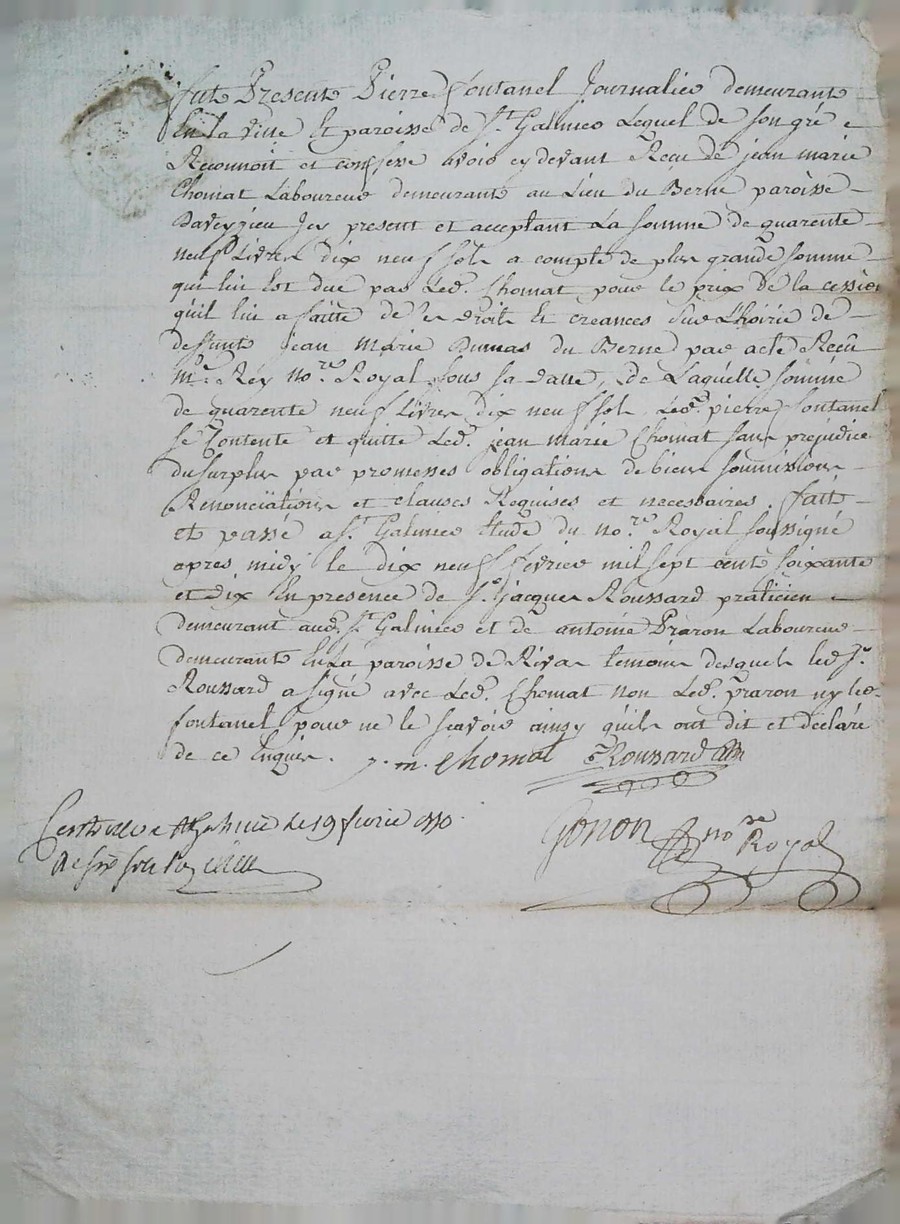 fut Present Pierre fontanel Journalier demeurant
En la ville Et paroisse de St Galmier Lequel de son gré
Reconnoit et confesse avoir cy devant Recu de jean marie
Chomat Laboureur demeurant au Lieu du Berne paroisse
Daveyzieu Icy present et acceptant La somme de quarente
neuf Livres dix neuf sols a compte de plus grande somme
qui lui Est due par Led. Chomat pour le prix de la cession
qu'il lui a faitte de ses droits Et creances sur L'hoirie de
deffunt jean Marie Dumas du Berne par acte Reçu
Me. Rey nore. Royal sous sa datte, de Laquelle somme
de quarente neuf Livres dix neuf sols Led. pierre fontanel
se Contente et quitte Led. jean marie Chomat sans prejudice
du surplus par promesses obligations de biens soumissions
Renonciations et clauses Requises et necessaires, fait
et passé a St Galmier Etude du nore. Royal soussigné
apres midy le dix neuf fevrier mil sept cent soixante
et dix En presence de Sr. jacques Roussard praticien
demeurant aud. St Galmier et de antoine Praron Laboureur
demeurant En La paroisse de Rivas temoins desquels led Sr.
Roussard a signé avec Led. Chomat non Led. praron ny led.
fontanel pour ne le sçavoir ainsy qu'ils ont dit et déclaré
de ce Enquis. j. m. Chomat Roussard
Gonon nore Royal
a St Galmier le 19 fevrier 1770.